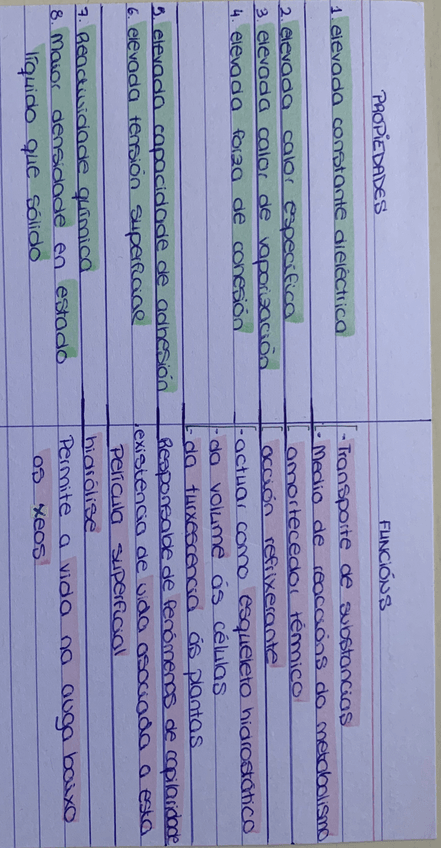 PROPIEDADES
FUNCIÓNS
1. elevada constante dieléctrica
- Transporte de substancias
- Medio de reaccións do metabolismo
2. elevada calor específica
amortecedor térmico
3 elevada calor de vaporización
acción refrixerante
4. elevada forza de cohesión
- actuar como esqueleto hidrostático
- da volume ás células
- da turxescencia ás plantas
5 elevada capacidade de adhesión
Responsable de fenómenos de capilaridade
6. elevada tensión superficial
existencia de vida asociada a esta
película superficial
7. Reactividade química
hidrólise
8. Maior densidade en estado
líquido que sólido
Permite a vida na auga baixo
os xeos